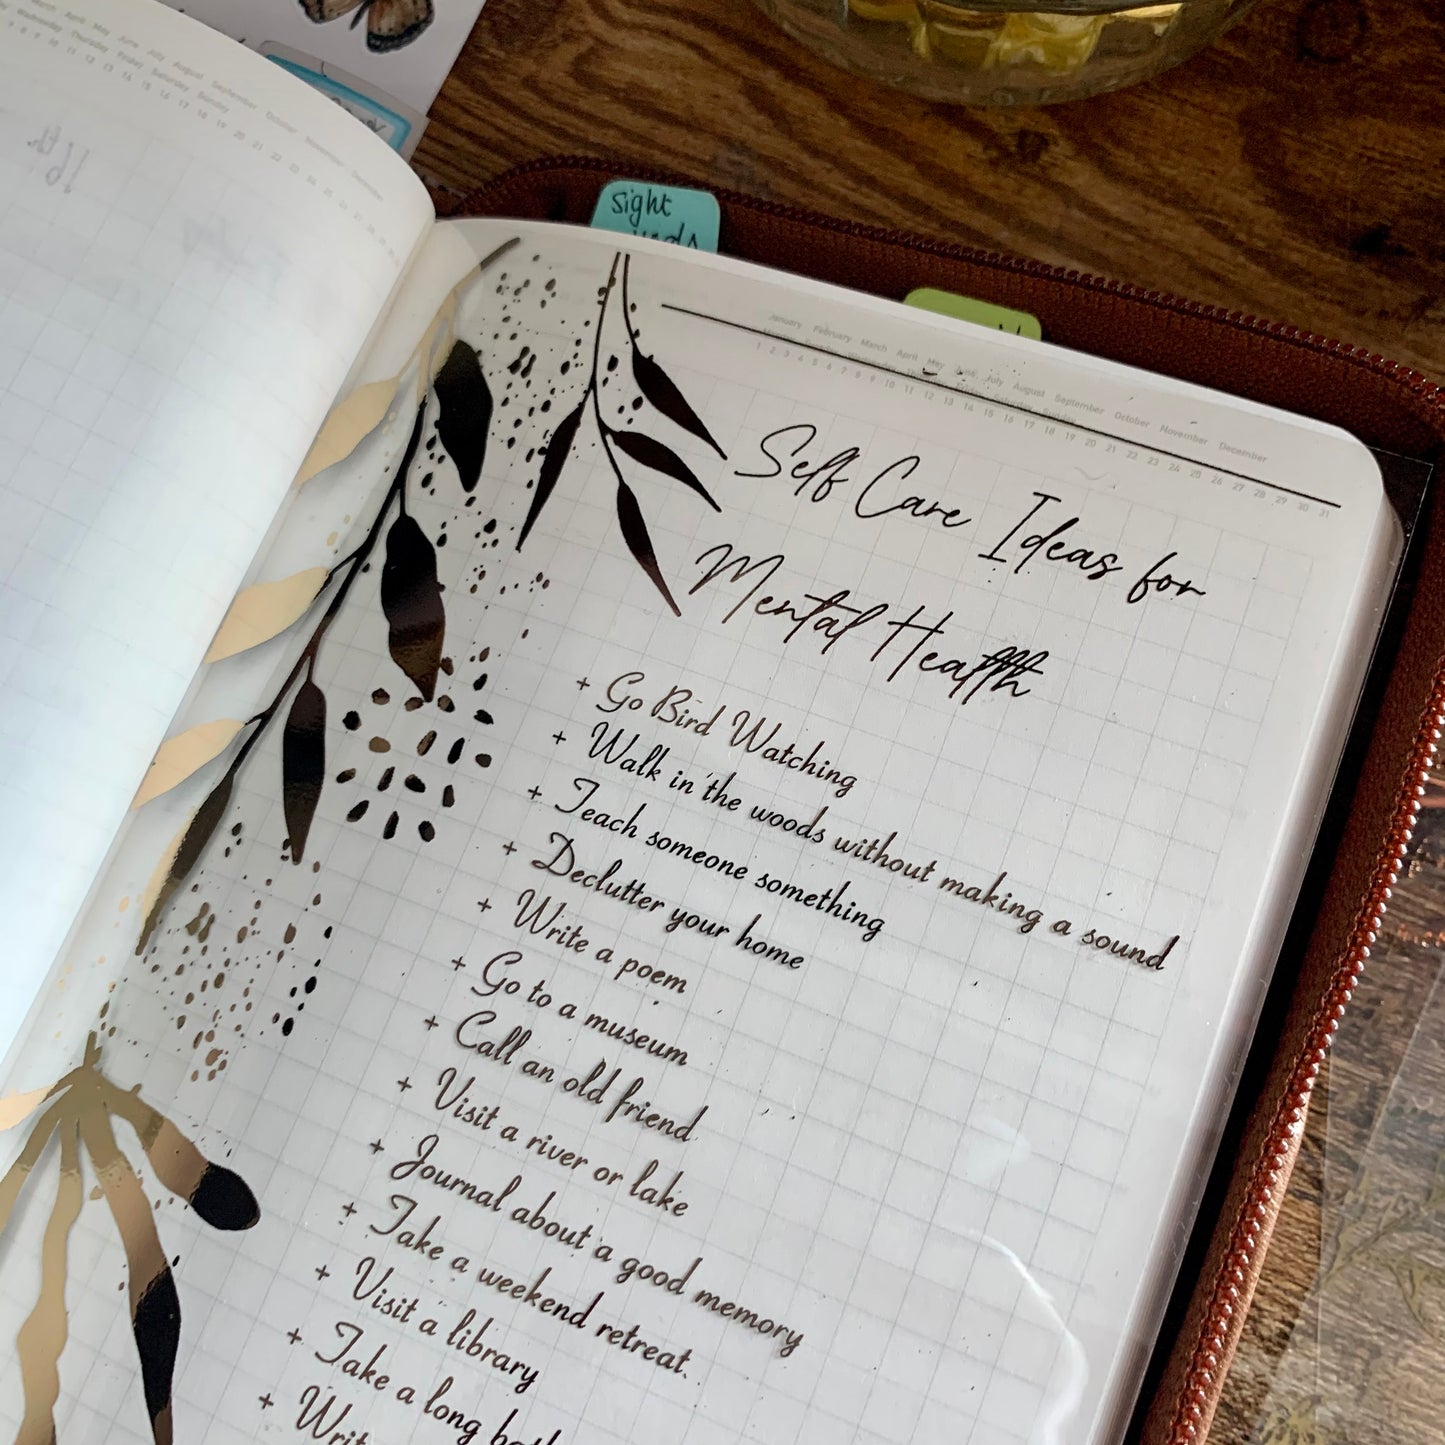 sight
January February March April May June July August September October November December
1 2 3 4 5 6 7 8 9 10 11 12 13 14 15 16 17 18 19 20 21 22 23 24 25 26 27 28 29 30 31
Self Care Ideas for
Mental Health
+ Go Bird Watching
+ Walk in the woods without making a sound
+ Teach someone something
+ Declutter your home
+ Write a poem
+ Go to a museum
+ Call an old friend
+ Visit a river or lake
+ Journal about a good memory
+ Take a weekend retreat.
+ Visit a library
+ Take a long
+
March April May June July August September October November December
Wednesday Thursday Friday Saturday Sunday
16th